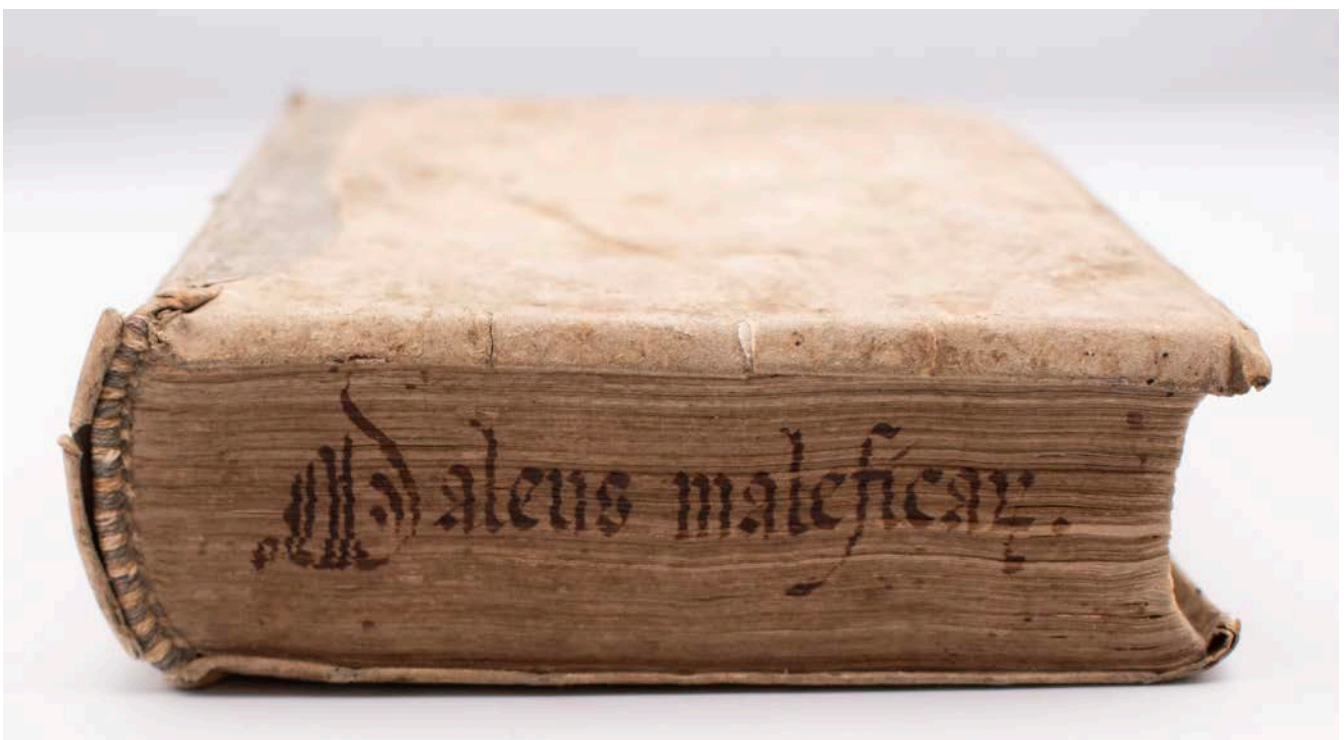 Maleus maleficaꝝ.